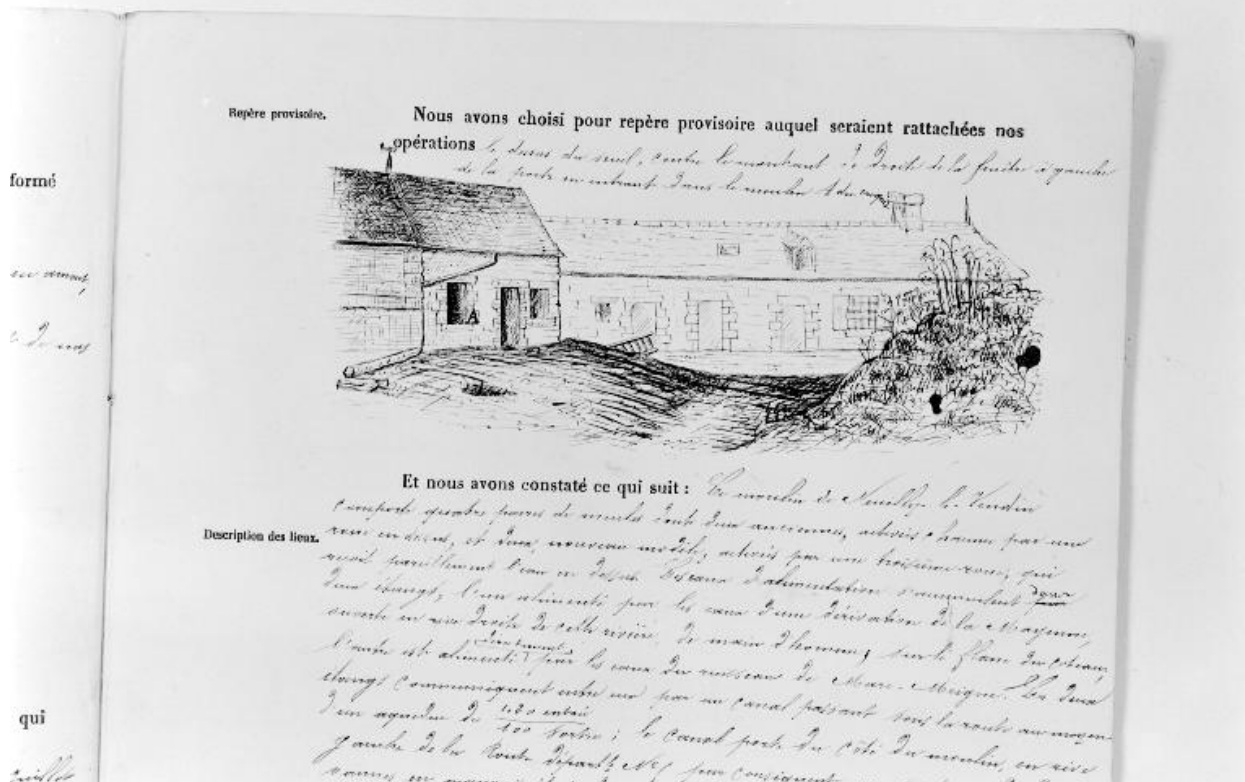 Repère provisoire.
Nous avons choisi pour repère provisoire auquel seraient rattachées nos
opérations le dessus du seuil, contre le montant de droite de la fenêtre à gauche
de la porte en entrant dans le moulin
formé
en amont,
de nos
A
Et nous avons constaté ce qui suit : Le moulin de Neuilly-le-Vendin
comporte quatre paires de meules dont deux anciennes, activées chacune par une
Description des lieux.
roue en dessus, et deux, nouveau modèle, activées par une troisième roue, qui
reçoit pareillement l'eau en dessus. Les eaux d'alimentation proviennent
deux étangs, l'un alimenté par les eaux d'une dérivation de la Mayenne,
ouverte en rive droite de cette rivière, de main d'homme, sur le flanc du coteau,
l'autre est alimenté directement par les eaux du ruisseau de Mare-. Les deux
étangs communiquent entre eux par un canal passant sous la route au moyen
d'un aqueduc de ; le canal porte du côté du moulin, en rive
qui
gauche de la Route départle No par conséquent
vannes en